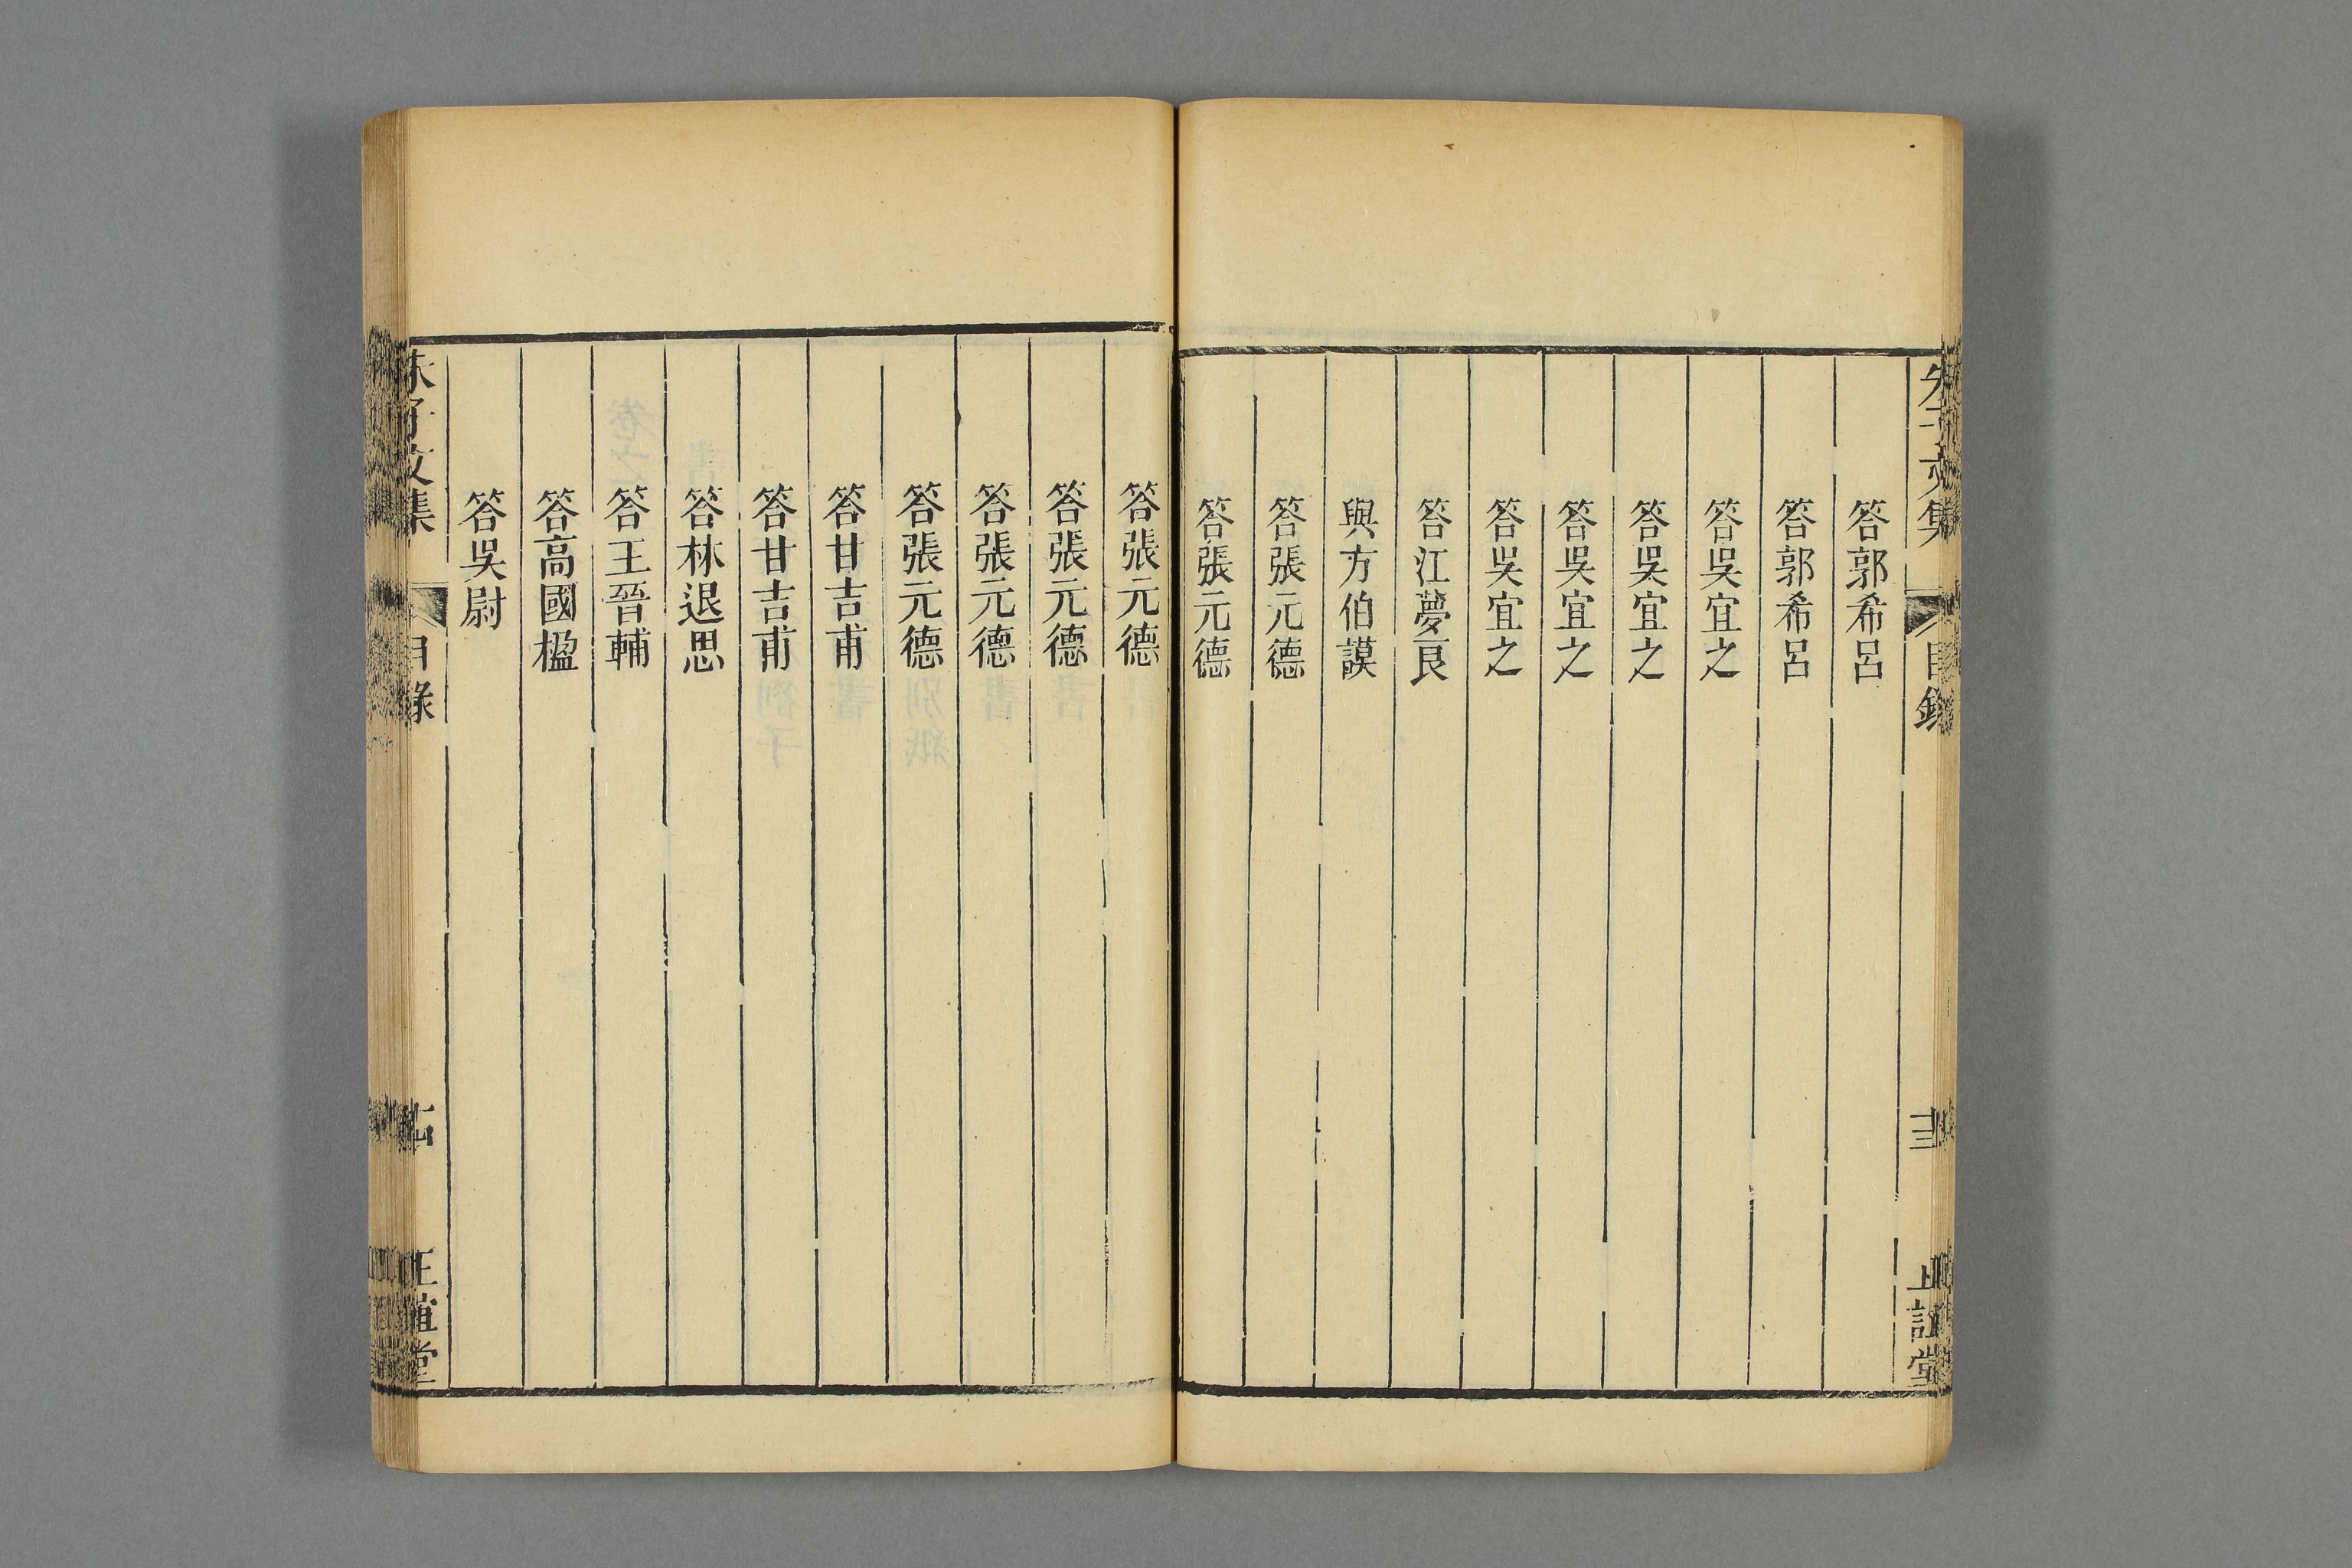 答郭希呂
答郭希呂
答吳宜之
答吳宜之
答吳宜之
答吳宜之
答江夢良
與方伯謨
答張元德
答張元德
答張元德
答張元德
答張元德
答張元德
答甘吉甫
答甘吉甫
答林退思
答王晉輔
答高國楹
答吳尉
朱子文集
目錄
正誼堂